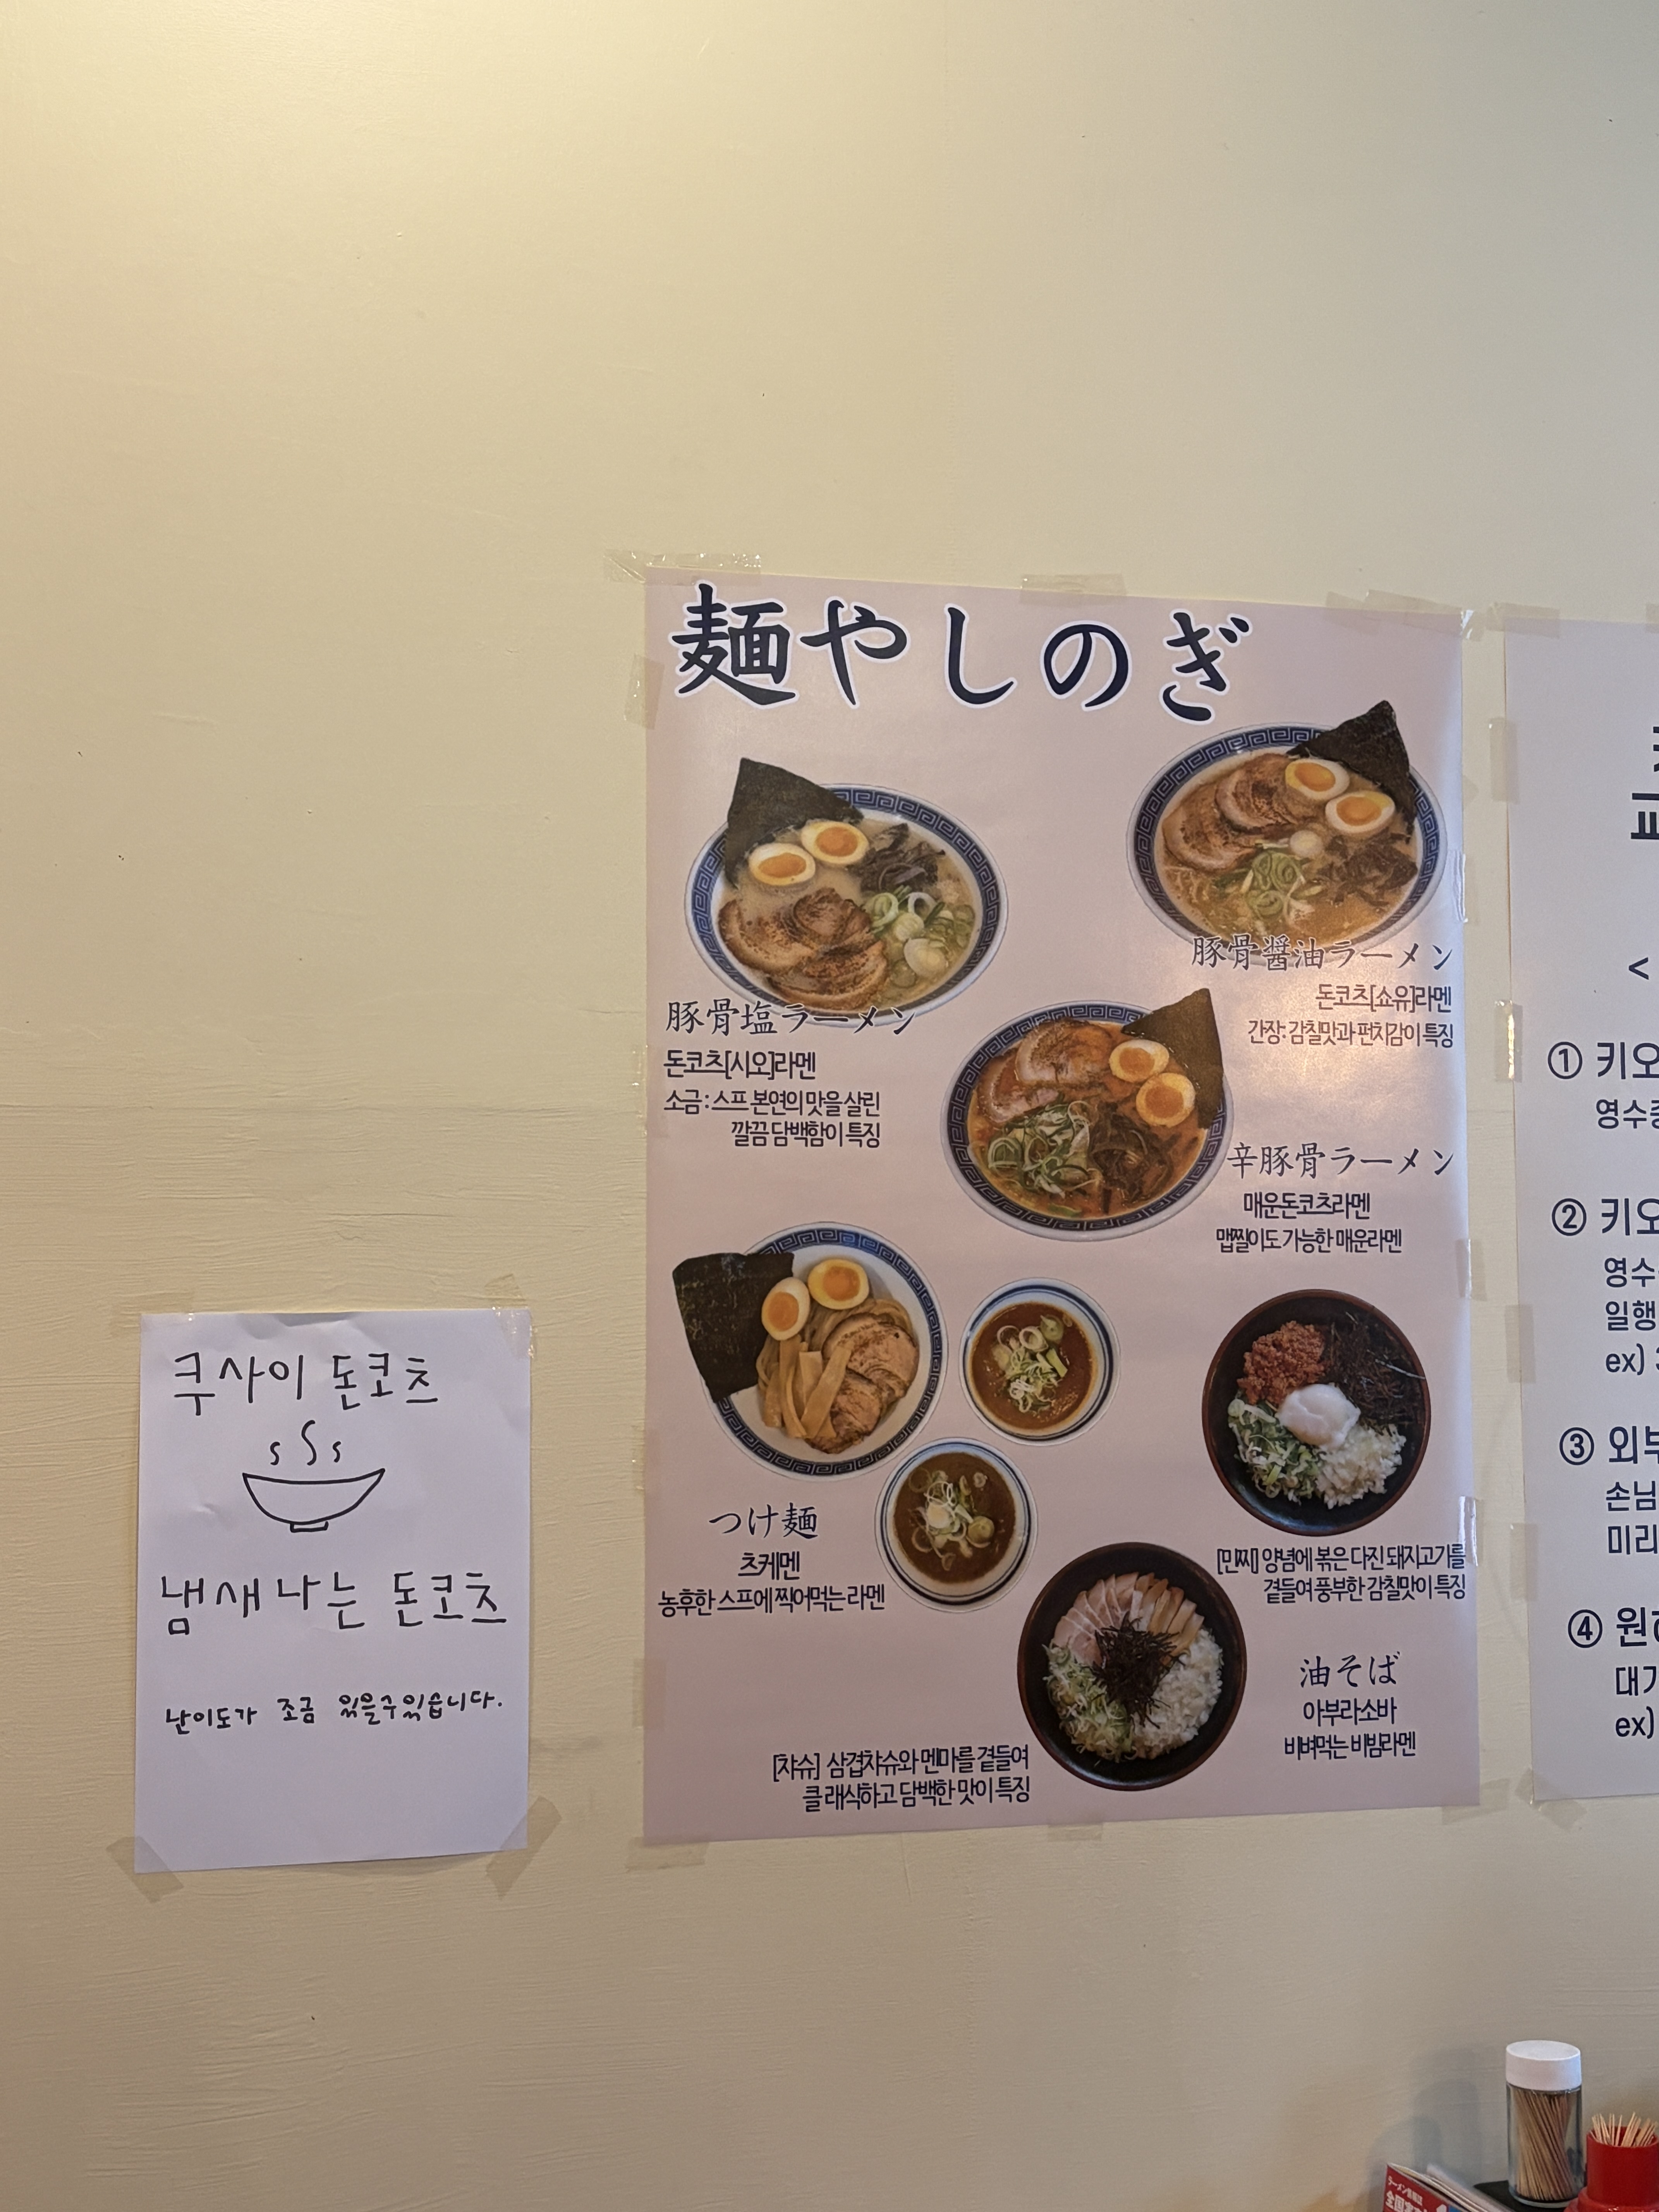 쿠사이 돈코츠
냄새나는 돈코츠
난이도가 조금 있을수있습니다.
麺やしのぎ
豚骨塩ラーメン
돈코츠[시오]라멘
소금 : 스프 본연의 맛을 살린
깔끔 담백함이 특징
豚骨醤油ラーメン
돈코츠[쇼유]라멘
간장: 감칠맛과 펀치감이 특징
辛豚骨ラーメン
매운돈코츠라멘
맵찔이도 가능한 매운라멘
つけ麺
츠케멘
농후한 스프에 찍어먹는 라멘
[민찌] 양념에 볶은 다진 돼지고기를
곁들여 풍부한 감칠맛이 특징
油そば
아부라소바
비벼먹는 비빔라멘
[챠슈] 삼겹챠슈와 멘마를 곁들여
클래식하고 담백한 맛이 특징
<
① 키오
영수증
② 키오
영수
일행
ex) 3
③ 외부
손님
미리
④ 원하
대기
ex)